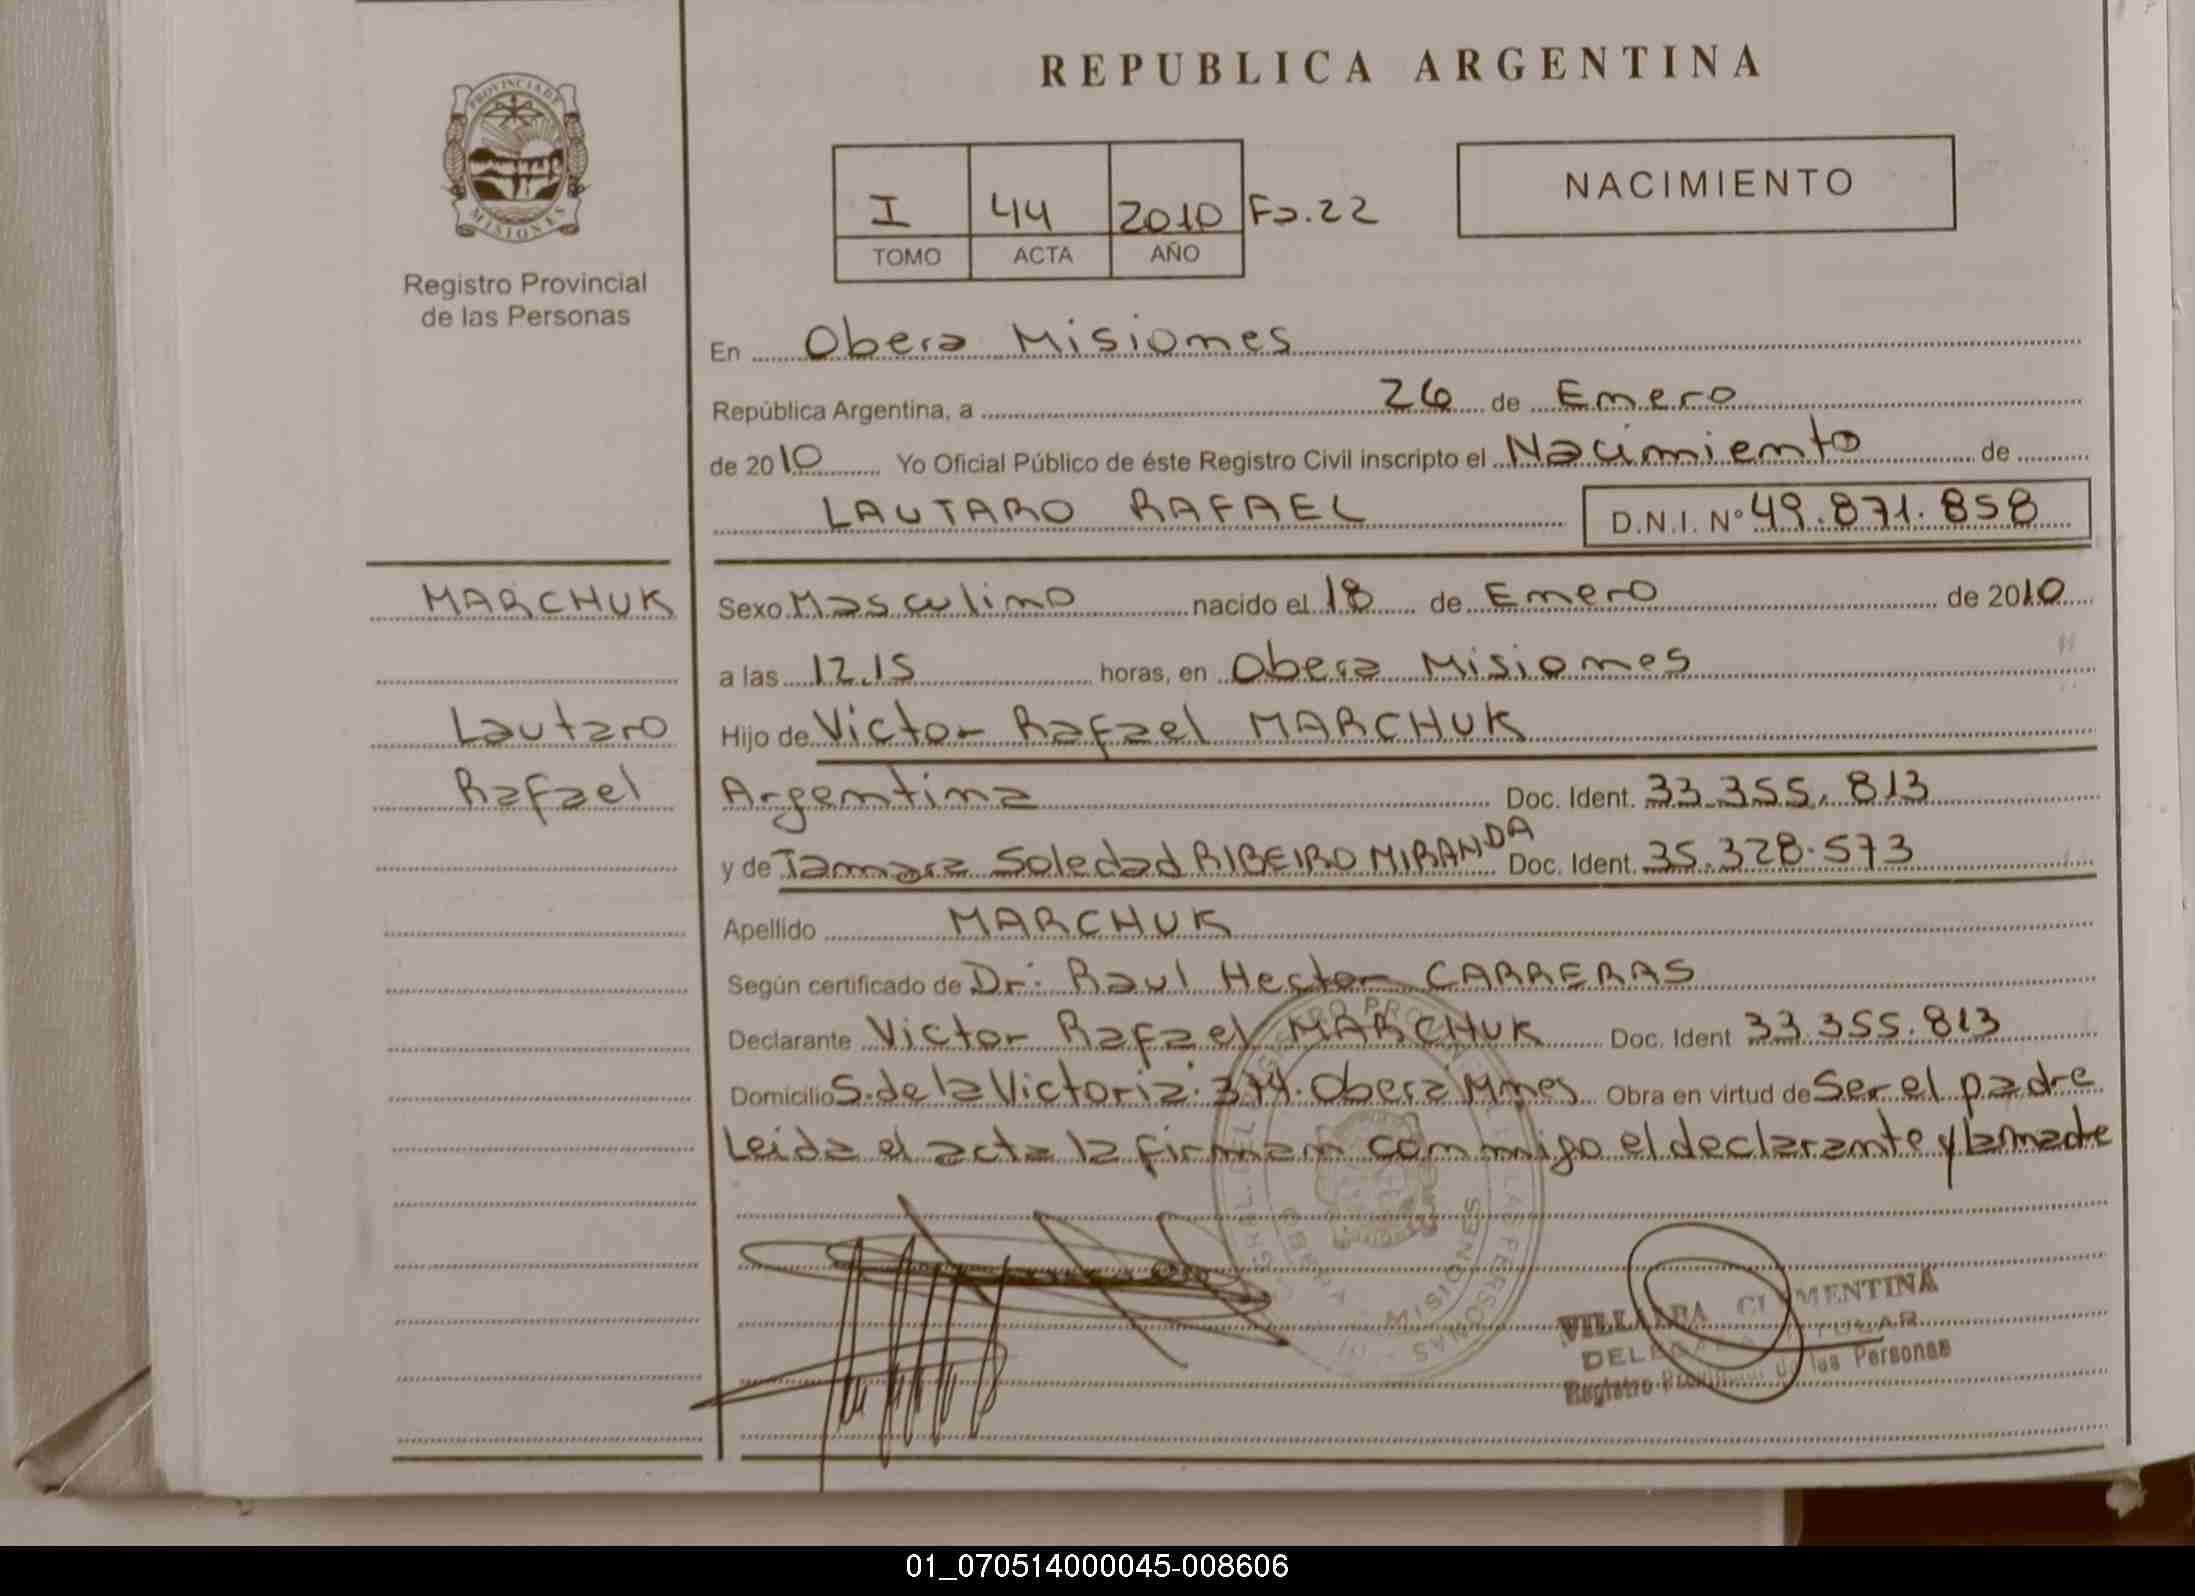 REPUBLICA ARGENTINA
PROVINCIA DE
MISIONES
Registro Provincial
de las Personas
NACIMIENTO
I 44 2010 Fo.22
TOMO ACTA AÑO
En Obera Misiones
República Argentina, a 26 de Enero
de 2010 Yo Oficial Público de éste Registro Civil inscripto el Nacimiento de
LAUTARO RAFAEL D.N.I. Nº 49.871.858
MARCHUK
Lautaro
Rafael
Sexo Masculino nacido el 18 de Enero de 2010
a las 12.15 horas, en Obera Misiones
Hijo de Victor Rafael MARCHUK
Argentina Doc. Ident. 33.355.813
y de Tamara Soledad RIBEIRO MIRANDA Doc. Ident. 35.328.573
Apellido MARCHUK
Según certificado de Dr: Raul Hector CARRERAS
Declarante Victor Rafael MARCHUK Doc. Ident 33.355.813
Domicilio S. de la Victoria. 374. Obera Mnes Obra en virtud de Ser el padre
Leida el acta la firman conmigo el declarante y la madre
OBERA - MISIONES
VILLALBA CLEMENTINA
DELEGADA TITULAR
Registro Provincial de las Personas
01_070514000045-008606